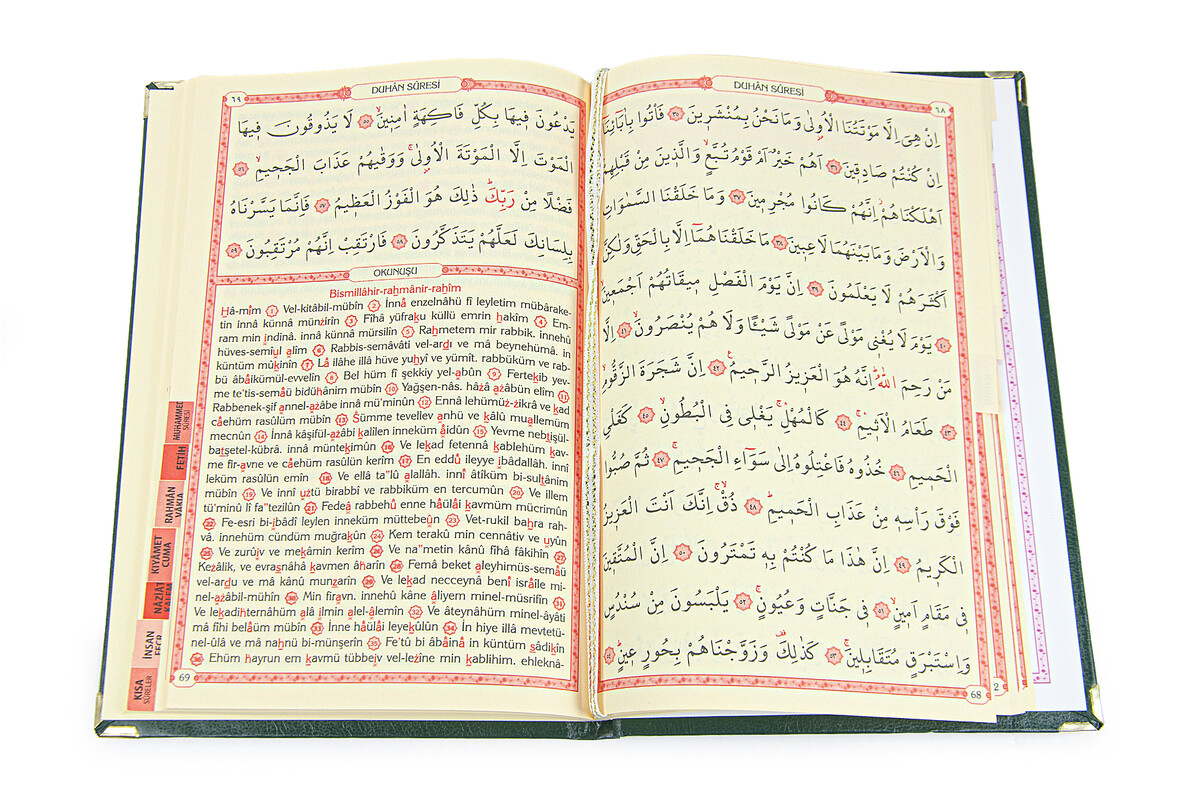 DUHÂN SÛRESİ
٦٨
اِنْ هِيَ اِلَّا مَوْتَتُنَا الْاُو۫لٰى وَمَا نَحْنُ بِمُنْشَر۪ينَ ٣٥ فَأْتُوا بِاٰبَٓائِنَٓا
اِنْ كُنْتُمْ صَادِق۪ينَ ٣٦ اَهُمْ خَيْرٌ اَمْ قَوْمُ تُبَّعٍۙ وَالَّذ۪ينَ مِنْ قَبْلِهِمْ
اَهْلَكْنَاهُمْۘ اِنَّهُمْ كَانُوا مُجْرِم۪ينَ ٣٧ وَمَا خَلَقْنَا السَّمٰوَاتِ
وَالْاَرْضَ وَمَا بَيْنَهُمَا لَاعِب۪ينَ ٣٨ مَا خَلَقْنَاهُمَٓا اِلَّا بِالْحَقِّ وَلٰكِنَّ
اَكْثَرَهُمْ لَا يَعْلَمُونَ ٣٩ اِنَّ يَوْمَ الْفَصْلِ م۪يقَاتُهُمْ اَجْمَع۪ينَۙ
٤٠ يَوْمَ لَا يُغْن۪ي مَوْلًى عَنْ مَوْلًى شَيْـًٔا وَلَا هُمْ يُنْصَرُونَۙ ٤١ اِلَّا
مَنْ رَحِمَ اللّٰهُۜ اِنَّهُ هُوَ الْعَز۪يزُ الرَّح۪يمُ۟ ٤٢ اِنَّ شَجَرَتَ الزَّقُّومِۙ
٤٣ طَعَامُ الْاَث۪يمِۚ ٤٤ كَالْمُهْلِۚ يَغْل۪ي فِي الْبُطُونِۙ ٤٥ كَغَلْيِ
الْحَم۪يمِ ٤٦ خُذُوهُ فَاعْتِلُوهُ اِلٰى سَوَٓاءِ الْجَح۪يمِۗ ٤٧ ثُمَّ صُبُّوا
فَوْقَ رَأْسِه۪ مِنْ عَذَابِ الْحَم۪يمِۜ ٤٨ ذُقْۙ اِنَّكَ اَنْتَ الْعَز۪يزُ
الْكَر۪يمُ ٤٩ اِنَّ هٰذَا مَا كُنْتُمْ بِه۪ تَمْتَرُونَ ٥٠ اِنَّ الْمُتَّق۪ينَ
ف۪ي مَقَامٍ اَم۪ينٍۙ ٥١ ف۪ي جَنَّاتٍ وَعُيُونٍۚ ٥٢ يَلْبَسُونَ مِنْ سُنْدُسٍ
وَاِسْتَبْرَقٍ مُتَقَابِل۪ينَۚ ٥٣ كَذٰلِكَ۠ وَزَوَّجْنَاهُمْ بِحُورٍ ع۪ينٍۜ ٥٤
68
2
٦٩
DUHÂN SÛRESİ
يَدْعُونَ ف۪يهَا بِكُلِّ فَاكِهَةٍ اٰمِن۪ينَۙ ٥٥ لَا يَذُوقُونَ ف۪يهَا
الْمَوْتَ اِلَّا الْمَوْتَةَ الْاُو۫لٰىۚ وَوَقٰيهُمْ عَذَابَ الْجَح۪يمِۙ ٥٦
فَضْلًا مِنْ رَبِّكَۜ ذٰلِكَ هُوَ الْفَوْزُ الْعَظ۪يمُ ٥٧ فَاِنَّمَا يَسَّرْنَاهُ
بِلِسَانِكَ لَعَلَّهُمْ يَتَذَكَّرُونَ ٥٨ فَارْتَقِبْ اِنَّهُمْ مُرْتَقِبُونَ ٥٩
OKUNUŞU
Bismillâhir-rahmânir-rahîm
Hâ-mîm 1 Vel-kitâbil-mübîn 2 İnnâ enzelnâhü fî leyletim mübârake-
tin innâ künnâ münzirîn 3 Fîhâ yüfraku küllü emrin hakîm 4 Em-
ram min ındinâ. innâ künnâ mürsilîn 5 Rahmetem mir rabbik. innehû
hüves-semîul alîm 6 Rabbis-semâvâti vel-ardı ve mâ beynehümâ. in
küntüm mûkinîn 7 Lâ ilâhe illâ hüve yuhyî ve yümît. rabbüküm ve rab-
bü âbâikümül-evvelîn 8 Bel hüm fî şekkiy yel-abûn 9 Fertekib yev-
me te'tis-semâü bidühânim mübîn 10 Yağşen-nâs. hâzâ azâbün elîm 11
Rabbenek-şif annel-azâbe innâ mü'minûn 12 Ennâ lehümüz-zikrâ ve kad
câehüm rasûlün mübîn 13 Sümme tevellev anhü ve kâlû muallemüm
mecnûn 14 İnnâ kâşifül-azâbi kalîlen inneküm âidûn 15 Yevme nebtişül-
batşetel-kübrâ. innâ müntekimûn 16 Ve lekad fetennâ kablehüm kav-
me fir-avne ve câehüm rasûlün kerîm 17 En eddû ileyye ıbâdallâh. innî
leküm rasûlün emîn 18 Ve ellâ ta"lû alallâh. innî âtîküm bi-sultânim
mübîn 19 Ve innî uztü birabbî ve rabbiküm en tercumûn 20 Ve illem
tü'minû lî fa"tezilûn 21 Fedeâ rabbehû enne hâülâi kavmüm mücrimûn
22 Fe-esri bi-ıbâdî leylen inneküm müttebeûn 23 Vet-rukil bahra rah-
vâ. innehüm cündüm muğrakûn 24 Kem terakû min cennâtiv ve uyûn
25 Ve zurûıv ve mekâmin kerîm 26 Ve na"metin kânû fîhâ fâkihîn 27
Kezâlik, ve evrasnâhâ kavmen âharîn 28 Femâ beket aleyhimüs-semâü
vel-ardu ve mâ kânû munzarîn 29 Ve lekad necceynâ benî isrâîle mi-
nel-azâbil-mühîn 30 Min firavn. innehû kâne âliyem minel-müsrifîn 31
Ve lekadihternâhüm alâ ılmin alel-âlemîn 32 Ve âteynâhüm minel-âyâti
mâ fîhi belâüm mübîn 33 İnne hâülâi leyekûlûn 34 İn hiye illâ mevtetü-
nel-ûlâ ve mâ nahnü bi-münşerîn 35 Fe'tû bi âbâinâ in küntüm sâdikîn
36 Ehüm hayrun em kavmü tübbeiv vel-lezîne min kablihim. ehleknâ-
69
MUHAMMED
SÛRESİ
FETİH
RAHMÂN
VÂKIA
KIYAMET
CUMA
NÂZİÂT
İNSAN
FECR
KISA
SÛRELER